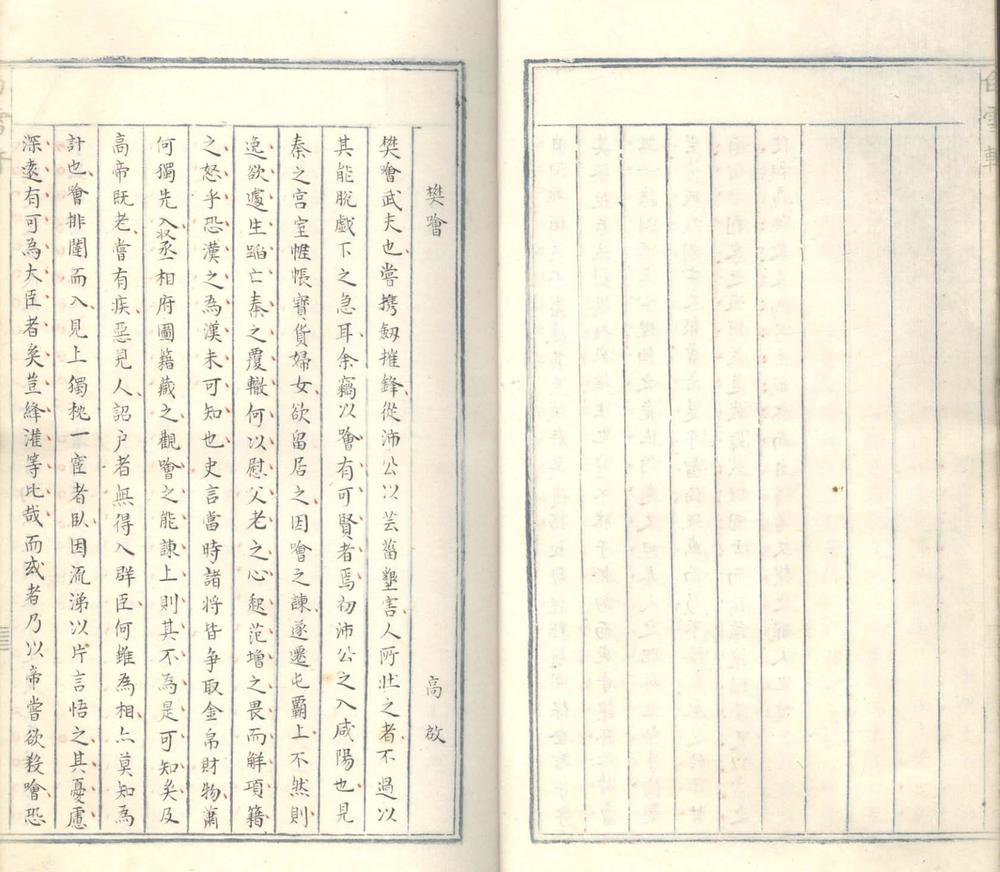 樊噲　高啟
樊噲武夫也嘗攜劒摧鋒從沛公以芸菑墾害人所壯之者不過以
其能脫戲下之急耳余竊以噲有可賢者焉初沛公之入咸陽也見
秦之宮室帷帳寶貨婦女欲留居之因噲之諫遂還屯霸上不然則
逸欲遽生蹈亡秦之覆轍何以慰父老之心起范增之畏而解項籍
之怒乎恐漢之為漢未可知也史言當時諸將皆爭取金帛財物蕭
何獨先入收丞相府圖籍藏之觀噲之能諫上則其不為是可知矣及
高帝既老嘗有疾惡見人詔户者無得入群臣何雖為相亦莫知為
計也噲排闥而入見上獨枕一宦者臥因流涕以片言悟之其憂慮
深遠有可為大臣者矣豈絳灌等比哉而或者乃以帝嘗欲殺噲恐